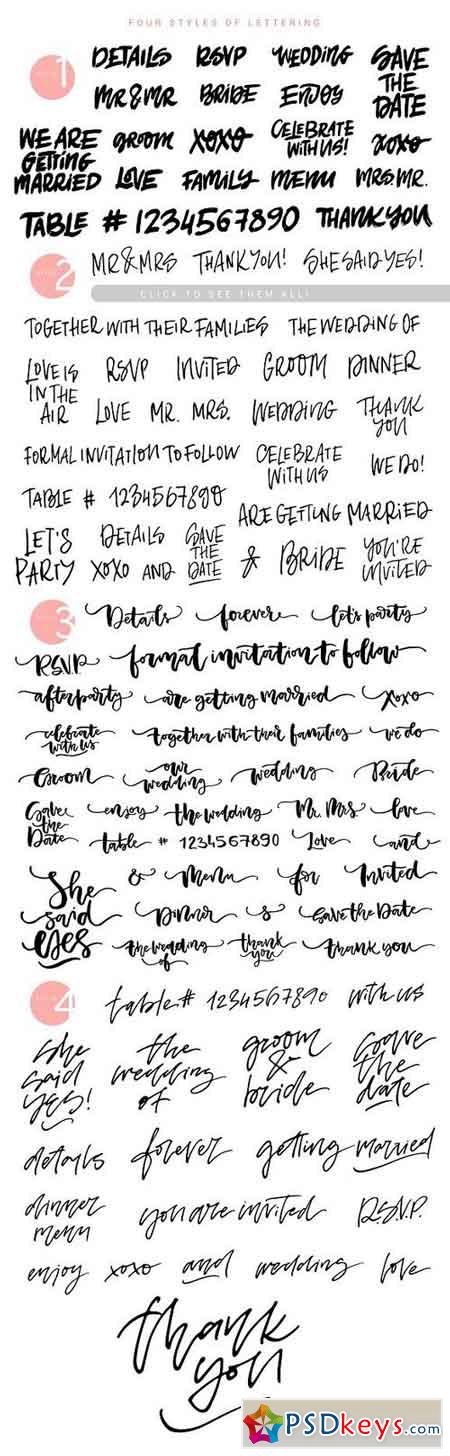 FOUR STYLES OF LETTERING
1
DETAILS RSVP WEDDING SAVE THE DATE
MR&MR BRIDE ENJOY
WE ARE GETTING MARRIED
groom xoxo CELEBRATE WITH US! xoxo
LOVE FAMILY MENU MRS.MR.
TABLE # 1234567890 THANK YOU
2
MR&MRS THANK YOU! SHE SAID YES!
CLICK TO SEE THEM ALL!
TOGETHER WITH THEIR FAMILIES THE WEDDING OF
LOVE IS IN THE AIR
RSVP INVITED GROOM DINNER
LOVE MR. MRS. WEDDING THANK YOU
FORMAL INVITATION TO FOLLOW CELEBRATE WITH US WE DO!
TABLE # 1234567890
ARE GETTING MARRIED
LET'S PARTY
DETAILS SAVE THE DATE & BRIDE YOU'RE INVITED
XOXO AND
3
Details forever let's party
RSVP formal invitation to follow
afterparty are getting married xoxo
celebrate with us together with their families we do
Groom our wedding wedding Bride
Save the Date enjoy the wedding Mr. Mrs love
table # 1234567890 Love and
She said yes
& Menu for Invited
Dinner & Save the Date
the wedding of thank you thank you
4
table # 1234567890 with us
she said YES!
the wedding of
groom & bride
save the date
details forever getting married
dinner menu
you are invited R.S.V.P.
enjoy xoxo and wedding love
thank you
PSDkeys.com